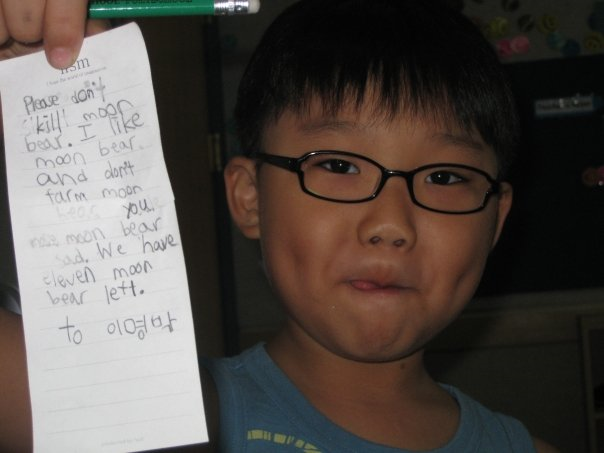 nsm
Please don't
"kill" moon
bear. I like
moon bear.
and don't
farm moon
bear you
make moon bear
sad. We have
eleven moon
bear left.
to 이명박